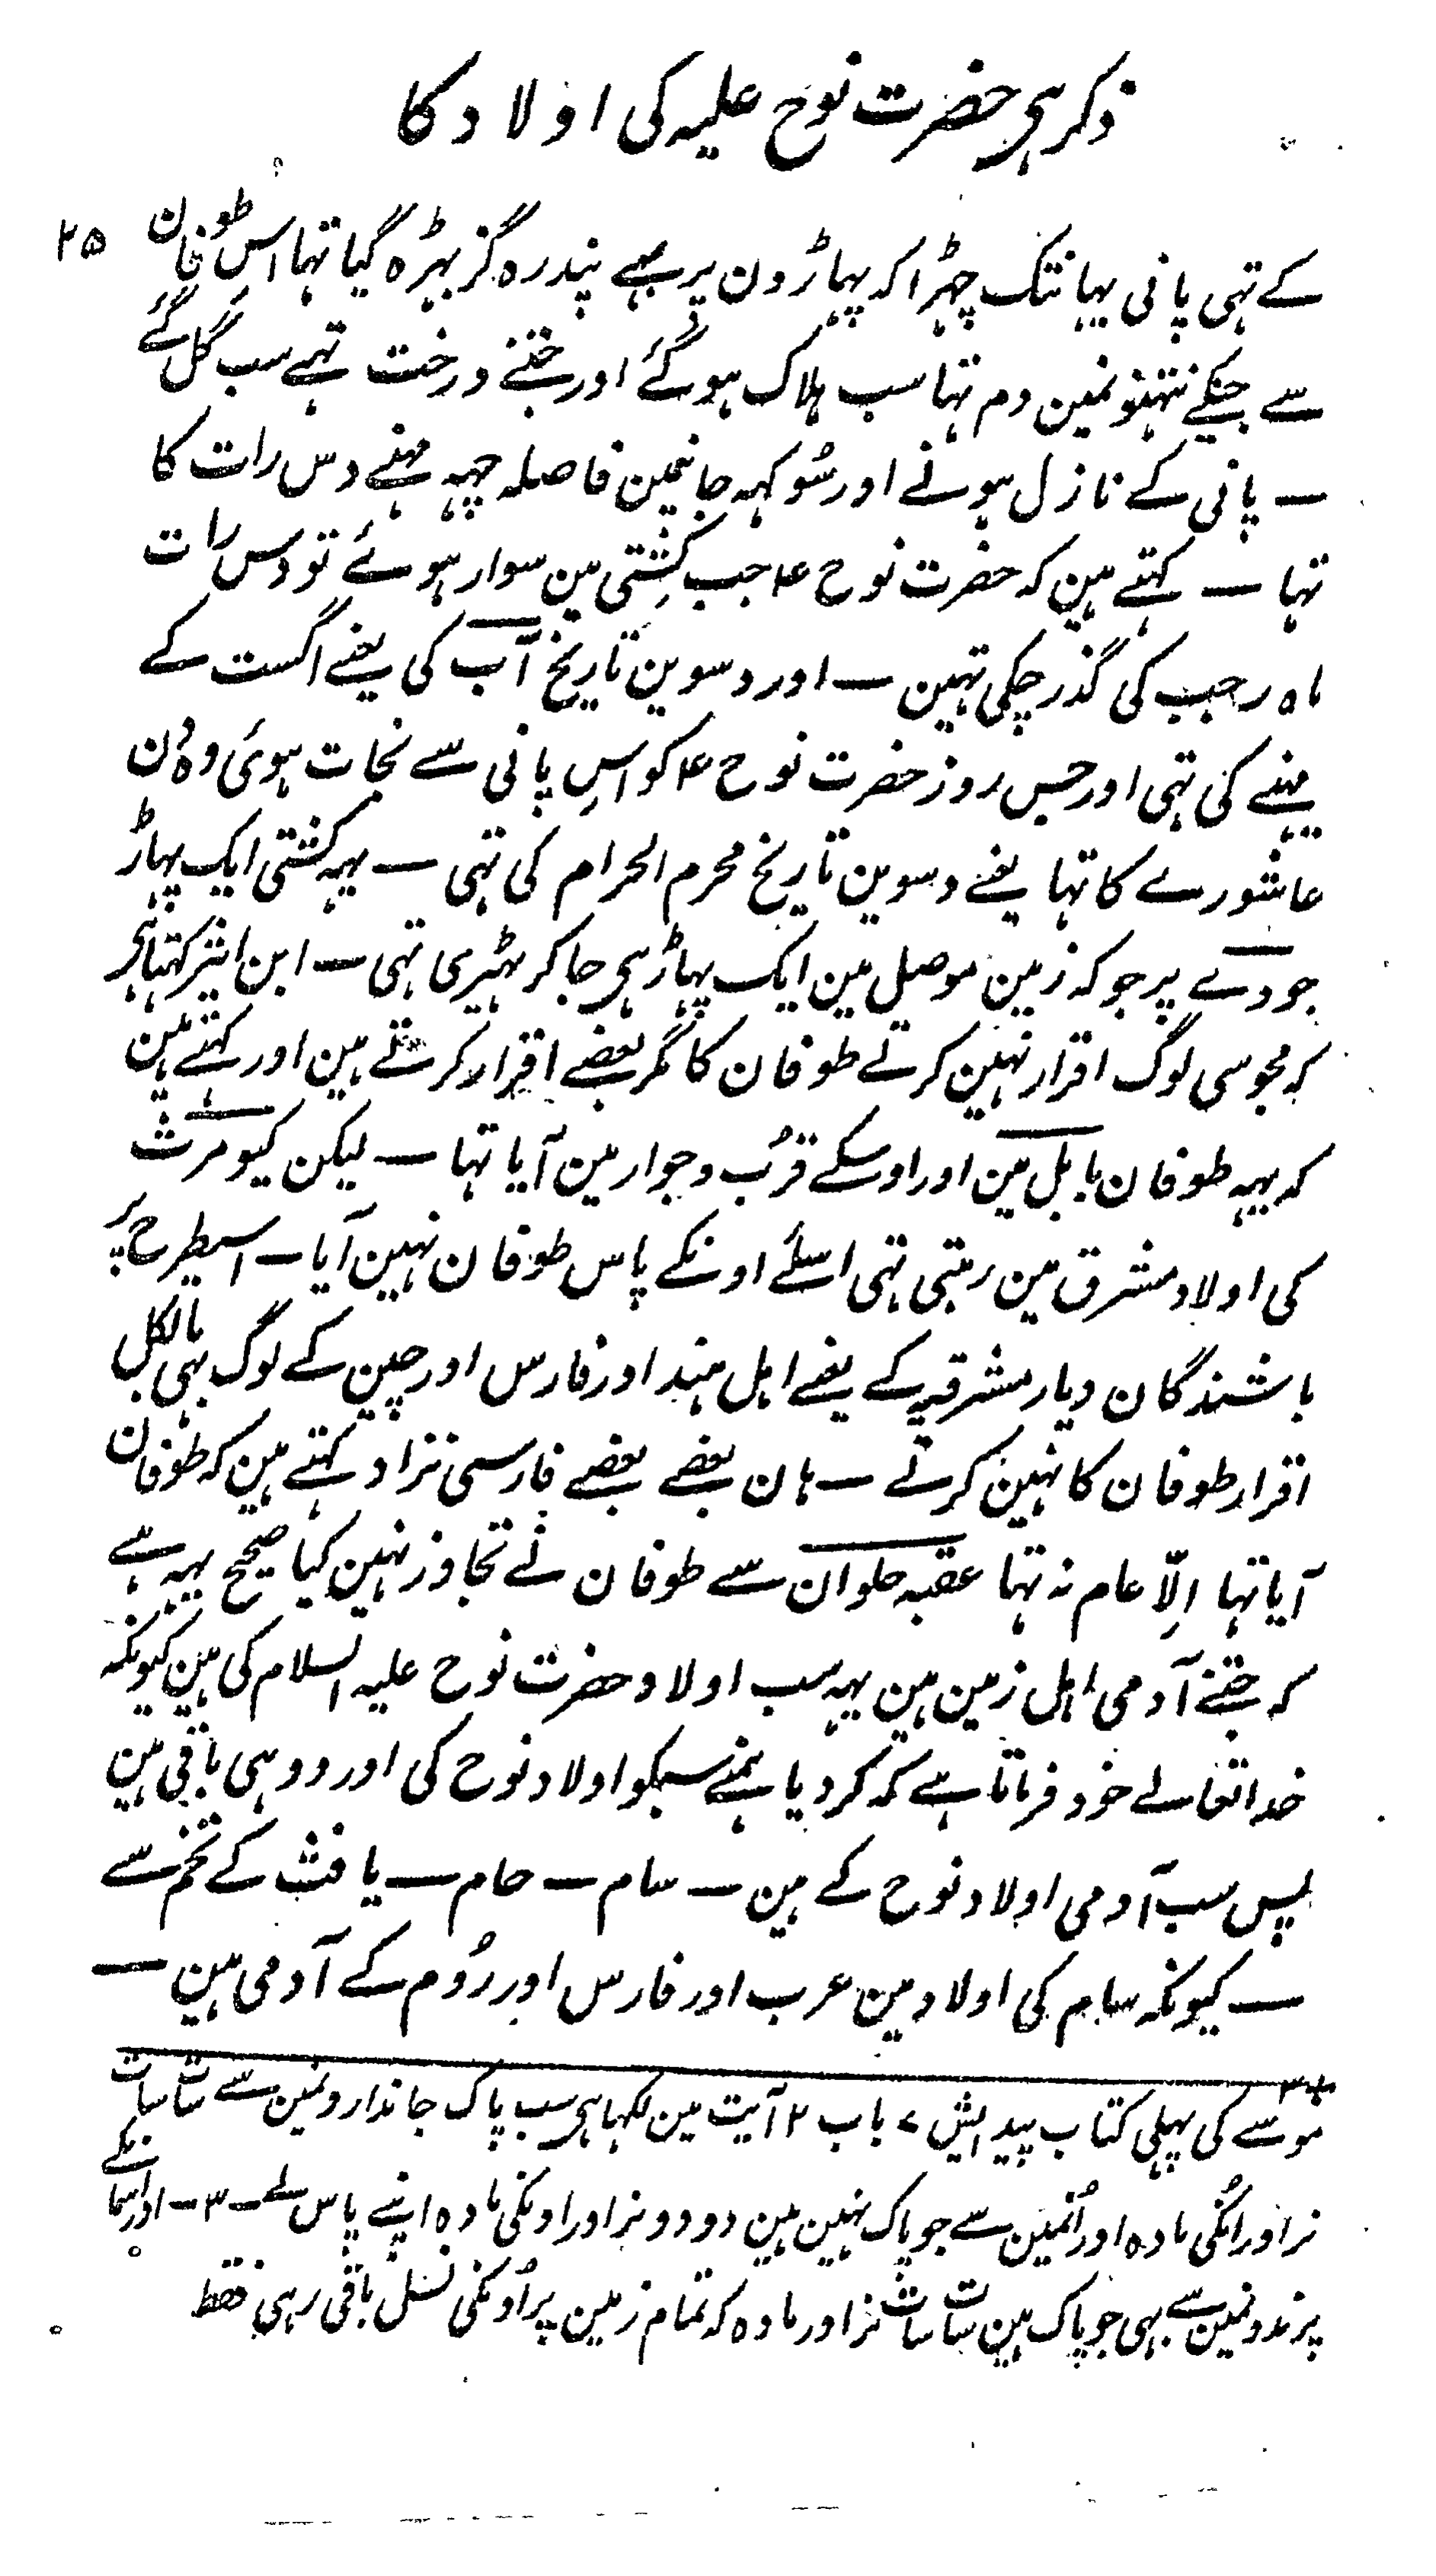 ذکر ہی حضرت نوح علیہ کی اولاد کا
۲۵
کے تہی پانی یہانتک چڑہا کہ پہاڑون پر سے پندرہ گز بڑہ گیا تہا اس طوفان
سے جنکے نتہنونمین دم تہا سب ہلاک ہوگئے اور جتنے درخت تہے سب گل گئے
ــ پانی کے نازل ہونے اور سُوکہہ جانیمین فاصلہ چہہ مہنے دس رات کا
تہا ــ کہتے ہین کہ حضرت نوح ؑ جب کشتی مین سوار ہوئے تو دس رات
ماہ رجب کی گذر چکی تہین ــ اور دسوین تاریخ آب کی یعنے اگست کے
مہنے کی تہی اور جس روز حضرت نوح ؑ کو اس پانی سے نجات ہوئی وہ دن
عاشورے کا تہا یعنے دسوین تاریخ محرم الحرام کی تہی ــ یہہ کشتی ایک پہاڑ
جودے پر جو کہ زمین موصل مین ایک پہاڑ ہی جا کر ٹہیری تہی ــ ابن اثیر کہتا ہی
کہ مجوسی لوگ اقرار نہین کرتے طوفان کا مگر بعضے اقرار کرتے ہین اور کہتے ہین
کہ یہہ طوفان بابل مین اور اوسکے قرُب وجوار مین آیا تہا ــ لیکن کیومرث
کی اولاد مشرق مین رہتی تہی اسلئے اونکے پاس طوفان نہین آیا ــ اسیطرح پر
باشندگان دیار مشرقیہ کے یعنے اہل ہند اور فارس اور چین کے لوگ بہی بالکل
اقرار طوفان کا نہین کرتے ــ ہان بعضے بعضے فارسی نژاد کہتے ہین کہ طوفان
آیا تہا اِلّا عام نہ تہا عقبہ حلوان سے طوفان نے تجاوز نہین کیا صحیح یہہ ہے
کہ جتنے آدمی اہل زمین ہین یہہ سب اولاد حضرت نوح علیہ السلام کی ہین کیونکہ
خداتعالے خود فرماتا ہے کہ کر دیا ہمنے سبکو اولاد نوح کی اور ووہی باقی ہین
پس سب آدمی اولاد نوح کے ہین ــ سام ــ حام ــ یافث کے تخم سے
ــ کیونکہ سام کی اولاد مین عرب اور فارس اور رُوم کے آدمی ہین ــ
موسے کی پہلی کتاب پیدایش ۷ باب ۲ آیت مین لکہا ہی سب پاک جاندارونمین سے سات سات
نر اور انُکی مادہ اور اُنمین سے جو پاک نہین ہین دو دو نر اور اونکی مادہ اپنے پاس لے ــ ۳ ــ اور آسمانکے
پرندونمین سے بہی جو پاک ہین سات سات نر اور مادہ کہ تمام زمین پر اُونکی نسل باقی رہی فقط